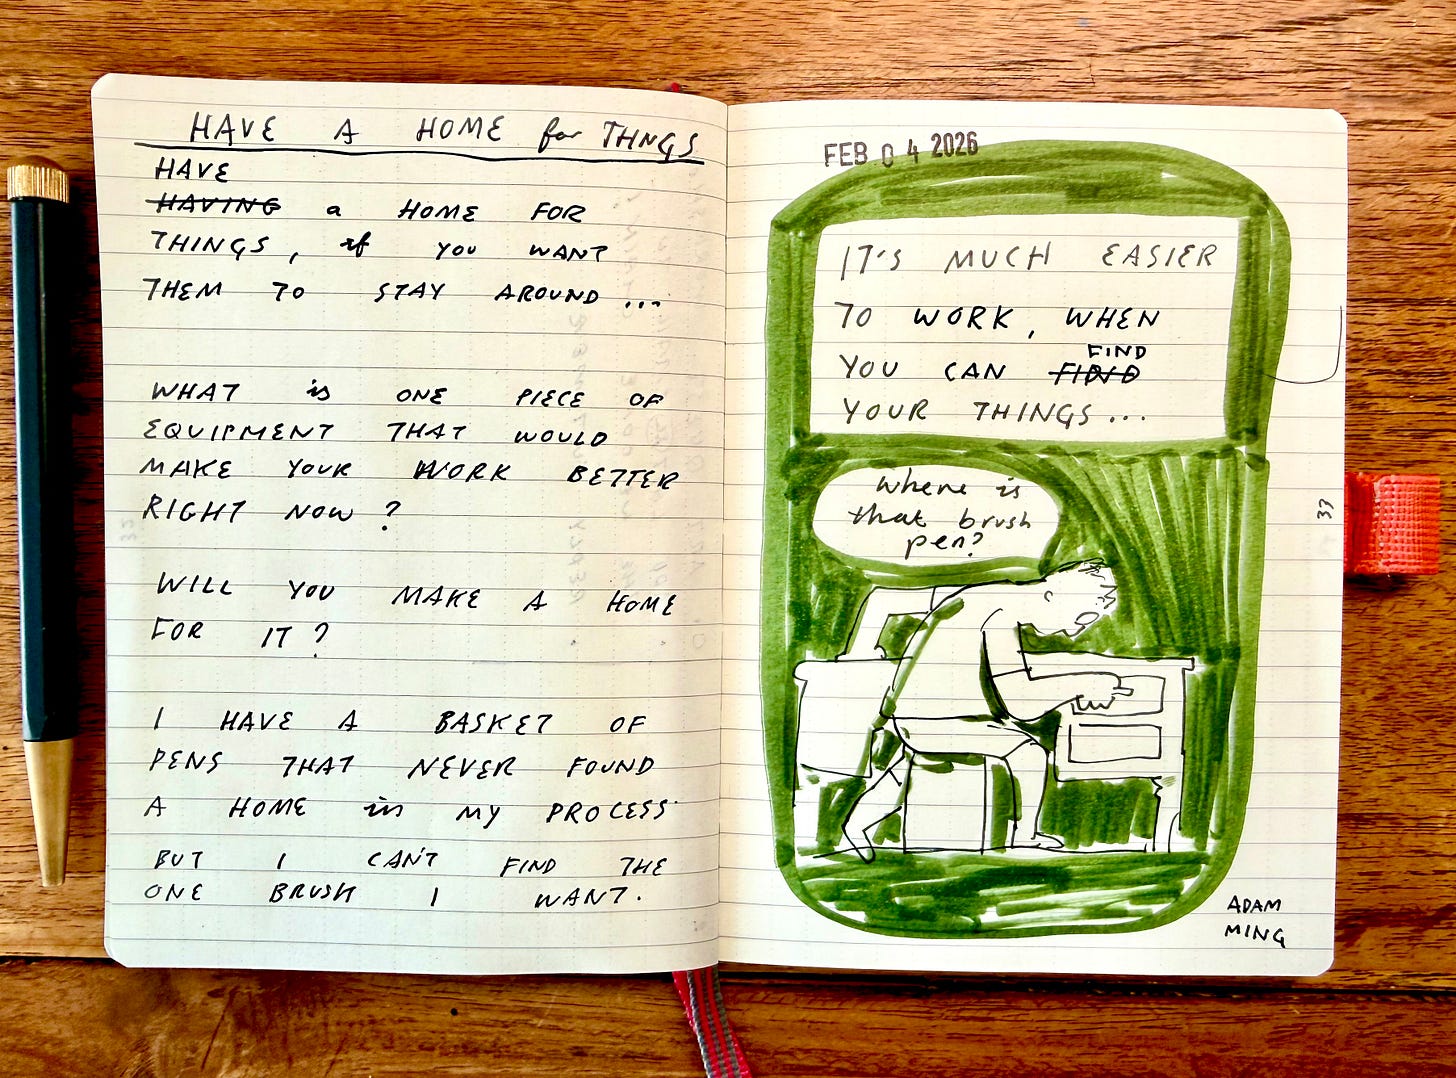 HAVE A HOME for THNGS
HAVE
HAVING a HOME FOR
THINGS, if YOU WANT
THEM TO STAY AROUND...
WHAT is ONE PIECE OF
EQUIPMENT THAT WOULD
MAKE YOUR WORK BETTER
RIGHT NOW?
WILL YOU MAKE A HOME
FOR IT?
I HAVE A BASKET OF
PENS THAT NEVER FOUND
A HOME in MY PROCESS
BUT I CAN'T FIND THE
ONE BRUSH I WANT.
FEB 04 2026
IT'S MUCH EASIER
TO WORK, WHEN
FIND
YOU CAN
YOUR THINGS...
where is
that brush
pen?
33
ADAM
MING